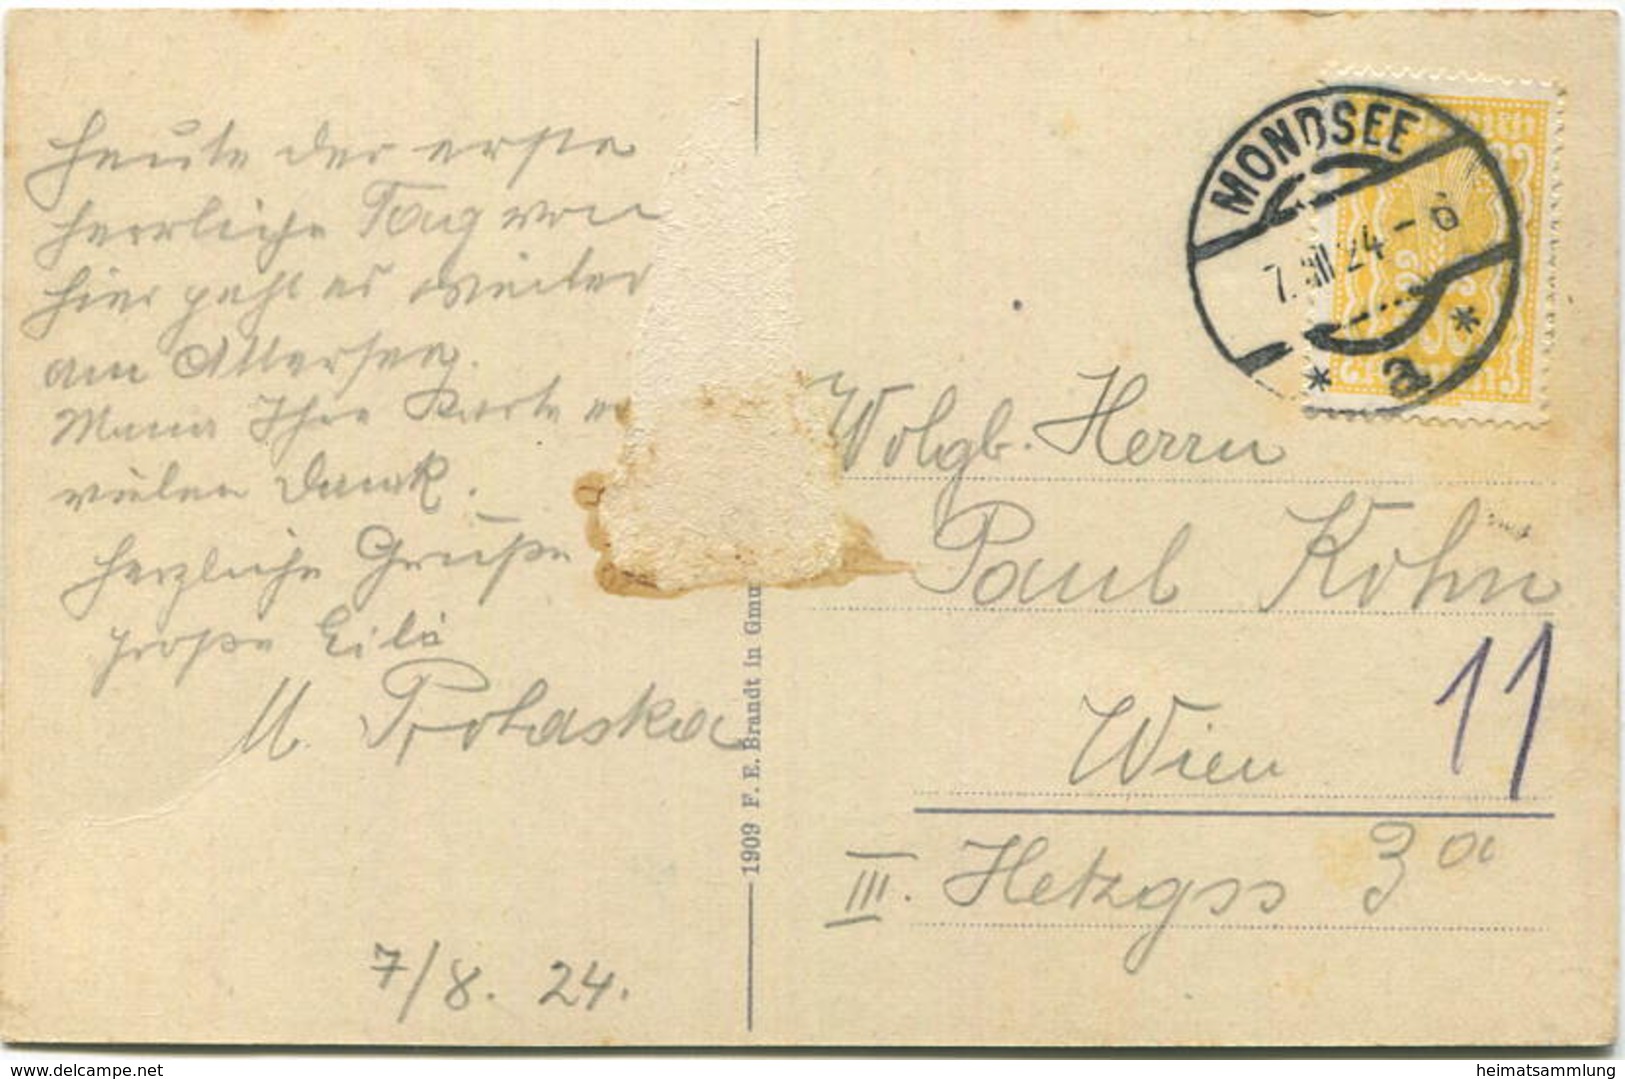 Heute der erste
herrliche Tag von
hier geht es weiter
am Attersee.
Ihre Karte
vielen Dank.
Herzliche Grüße
große Eile
M. Prohaska
7/8. 24.
1909 F. E. Brandt in Gmu
MONDSEE
7. VIII 24 - 6
* a *
Wolgb. Herrn
Paul Kohn
11
Wien
III. Hetzgss 3a
www.delcampe.net
heimatsammlung